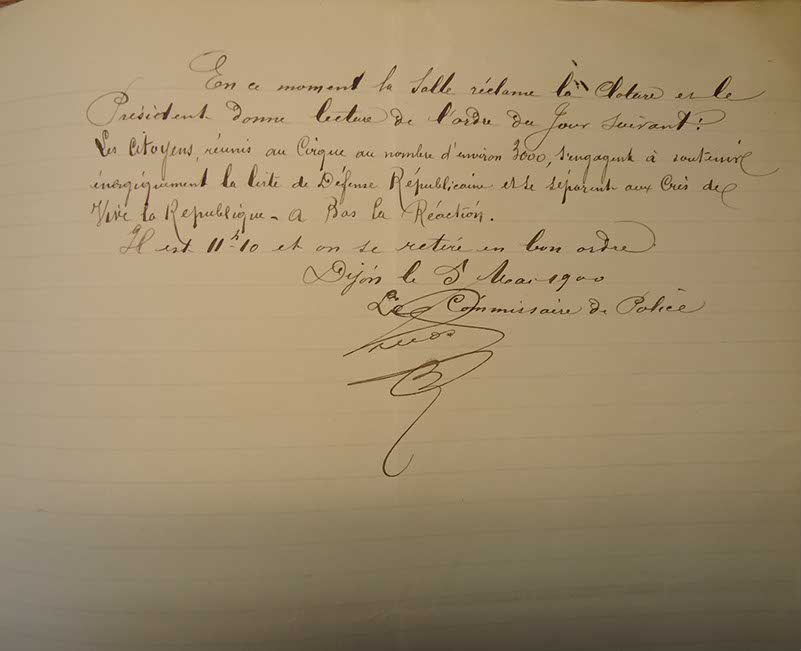 En ce moment la Salle réclame la Cloture et le
Président donne lecture de l'ordre du Jour suivant:
Les Citoyens, réunis au Cirque au nombre d'environ 3000, s'engagent à soutenir
énergiquement la liste de Défense Républicaine et se séparent aux Cris de
Vive la République - A Bas La Réaction.
Il est 11h10 et on se retire en bon ordre
Dijon le 5 Mai 1900
Le Commissaire de Police